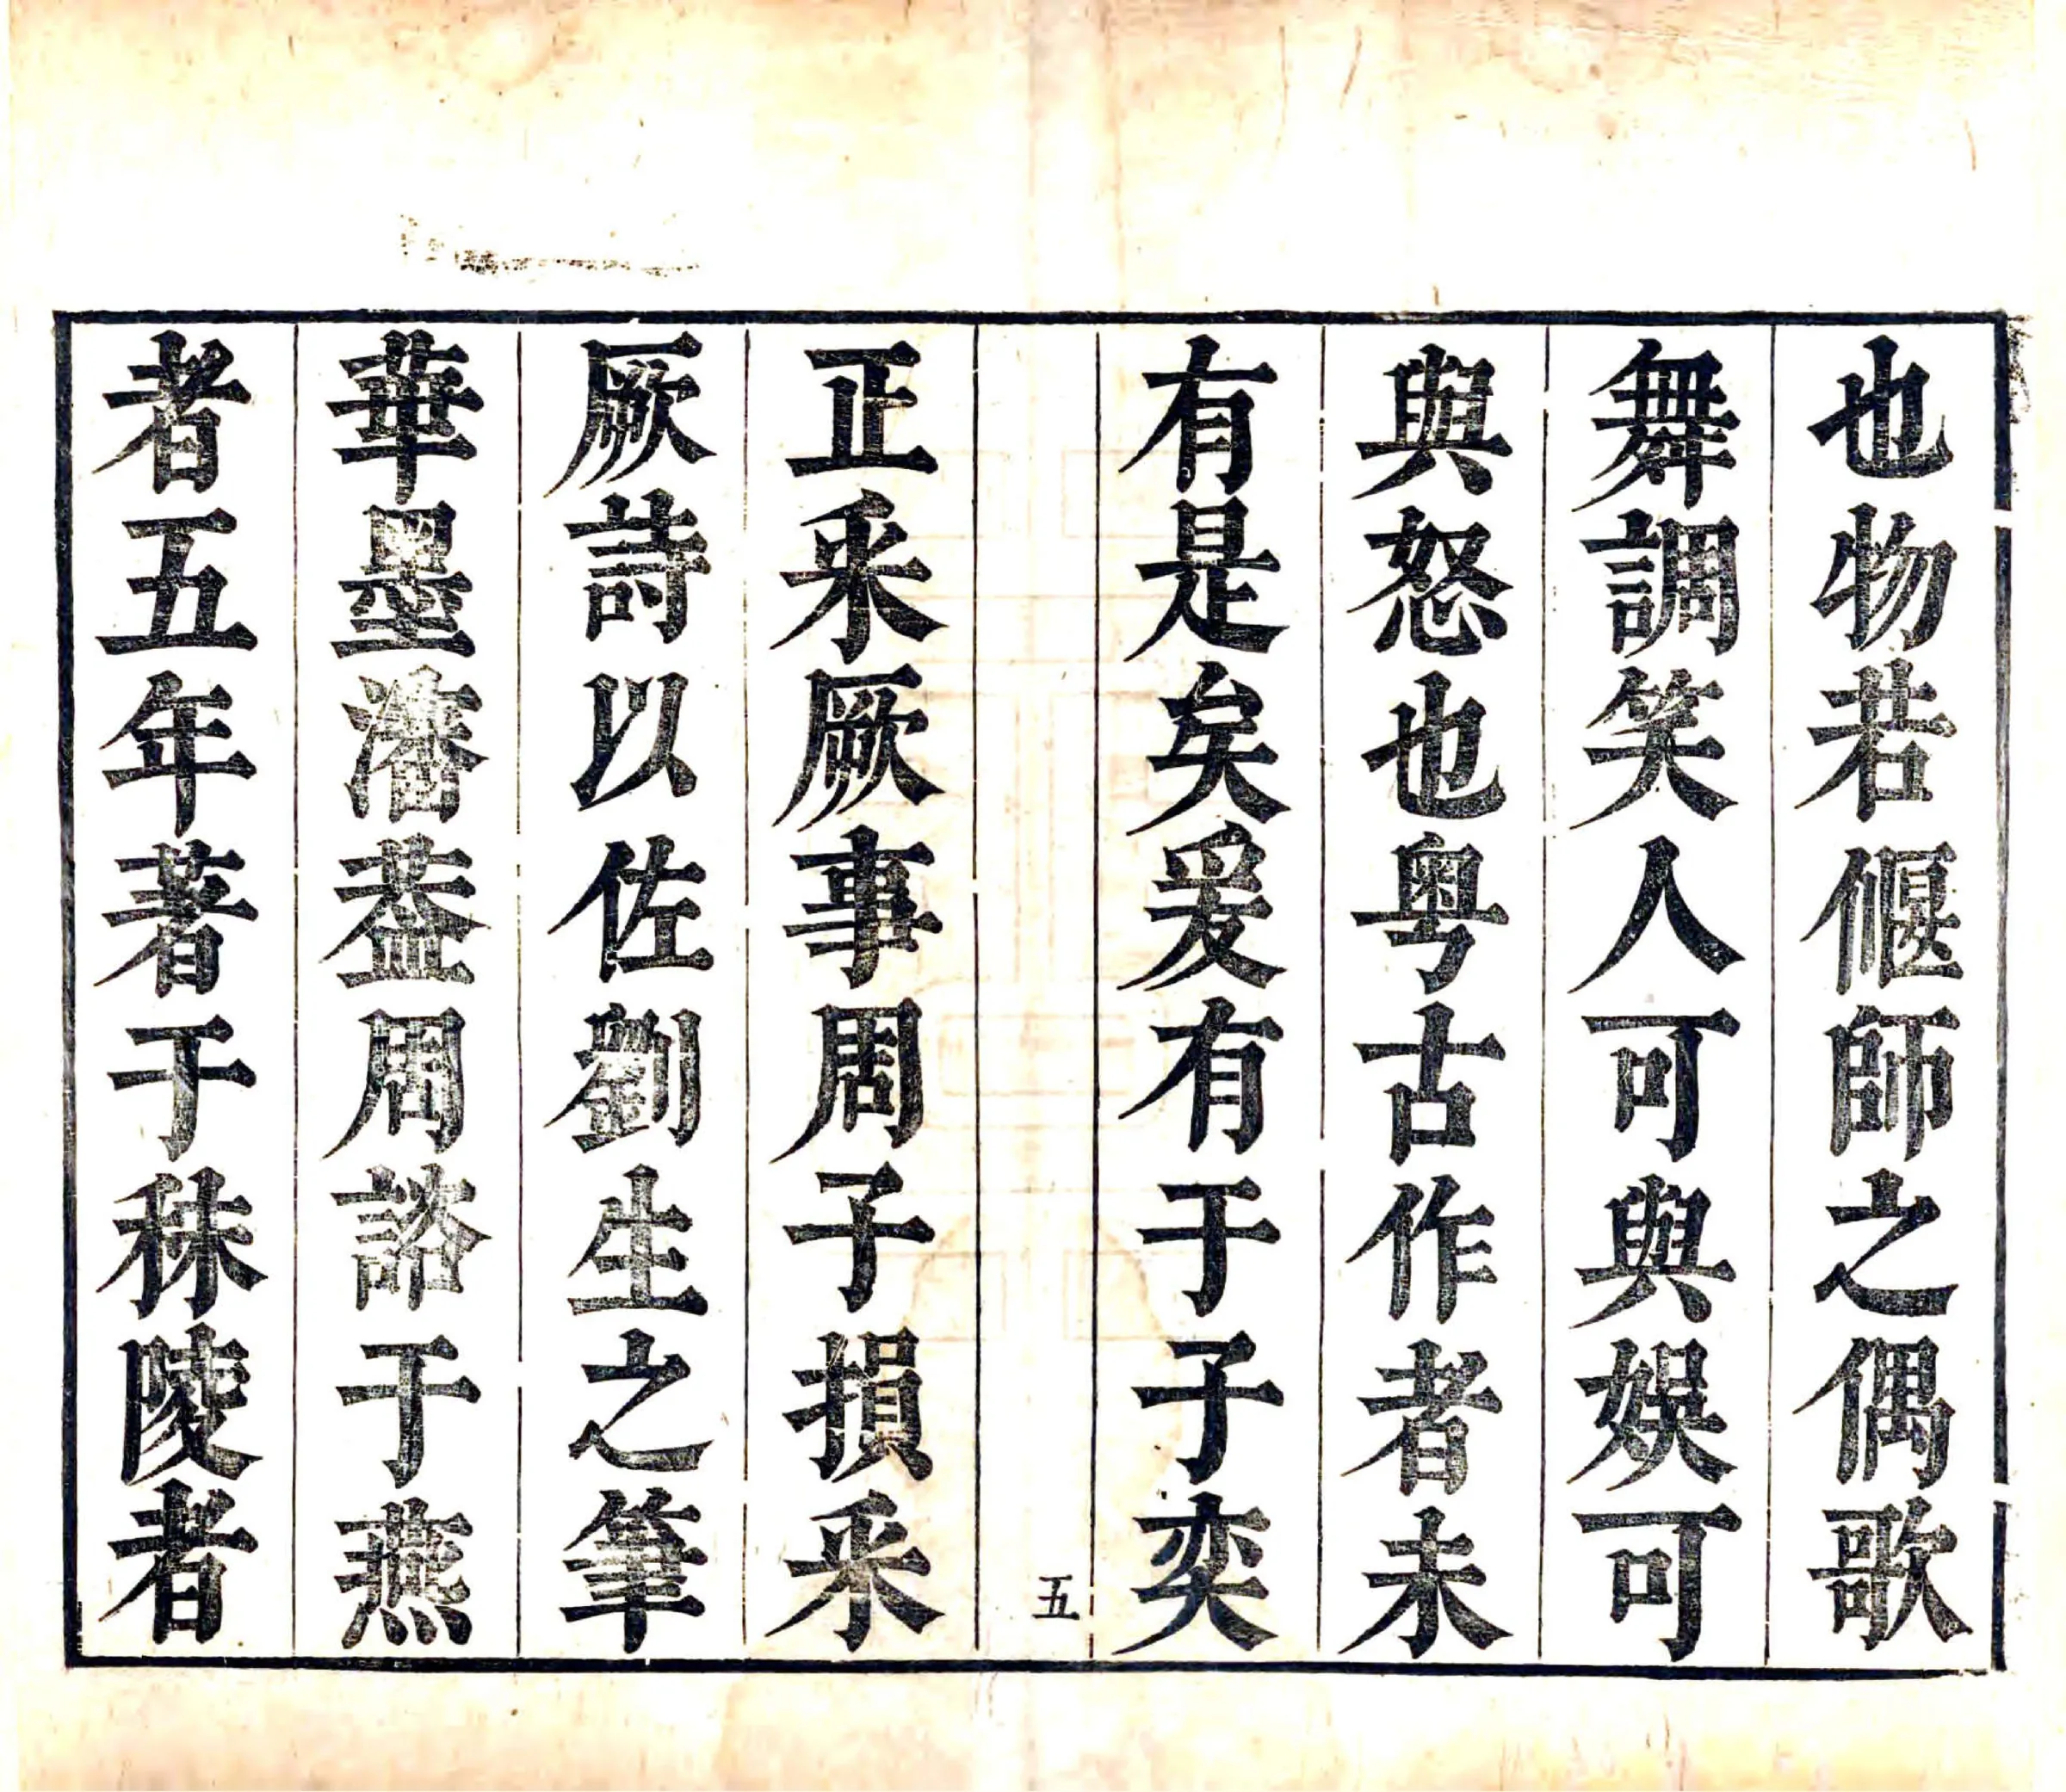 也物若偃師之偶歌
舞調笑人可與娛可
與怒也粤古作者未
有是矣爰有于子奕
五
正采厥事周子損采
厥詩以佐劉生之筆
華墨瀋葢周諮于燕
者五年著于秣陵者